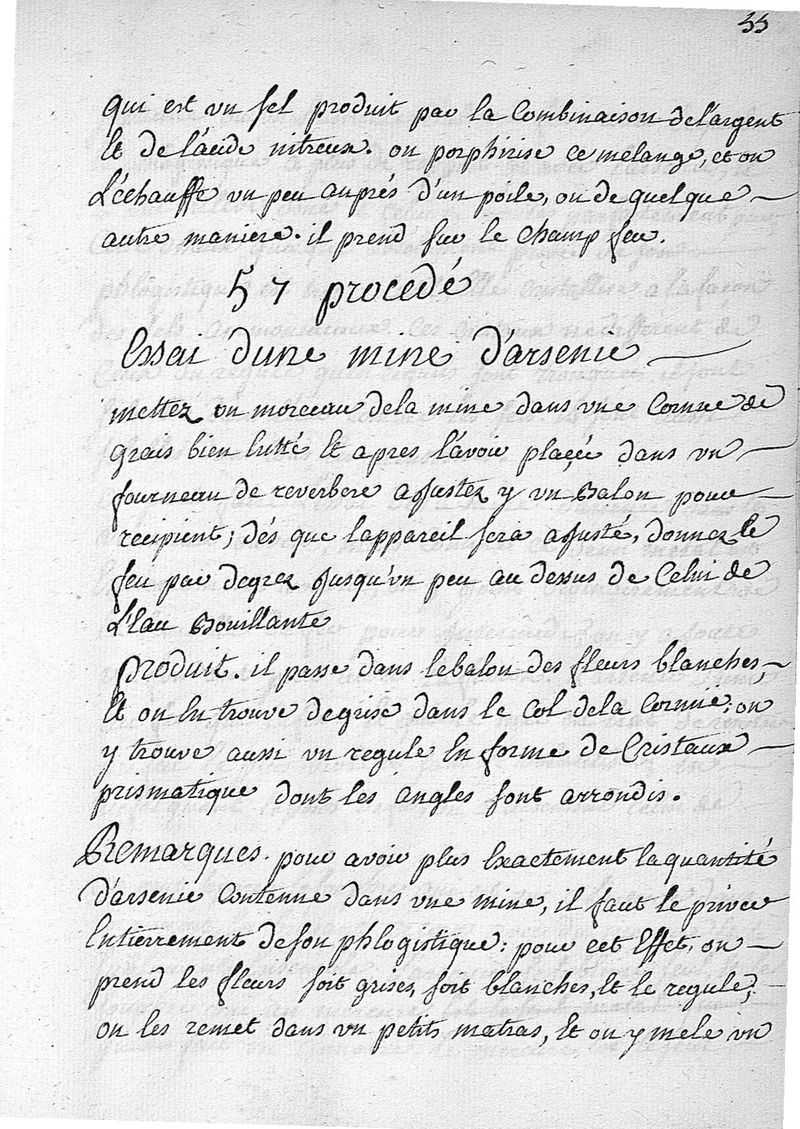 55
qui est un sel produit par la Combinaison de l'argent
Et de l'acide nitreux. on porphirise ce mélange, et on
L'échauffe un peu auprés d'un poile, ou de quelque
autre maniere. il prend sur le champ feu.
57 procedé
Essai d'une mine d'arsenic
mettez un morceau de la mine dans une Cornue de
grais bien lutté Et apres l'avoir placée dans un
fourneau de reverbere ajustez y un Balon pour
recipient; dés que l'appareil sera ajusté, donnez le
feu par degrez jusqu'un peu au dessus de Celui de
L'Eau Bouillante
produit. il passe dans le balon des fleurs blanches,
Et on En trouve de grise dans le Col de la Cornue, on
y trouve aussi un regule En forme de Cristaux
prismatique dont les angles sont arrondis.
Remarques. pour avoir plus Exactement la quantité
d'arsenic Contenue dans une mine, il faut le priver
Entierrement de son phlogistique: pour cet Effet, on
prend les fleurs soit grises, soit blanches, Et le regule;
on les remet dans un petits matras, Et on y mele un